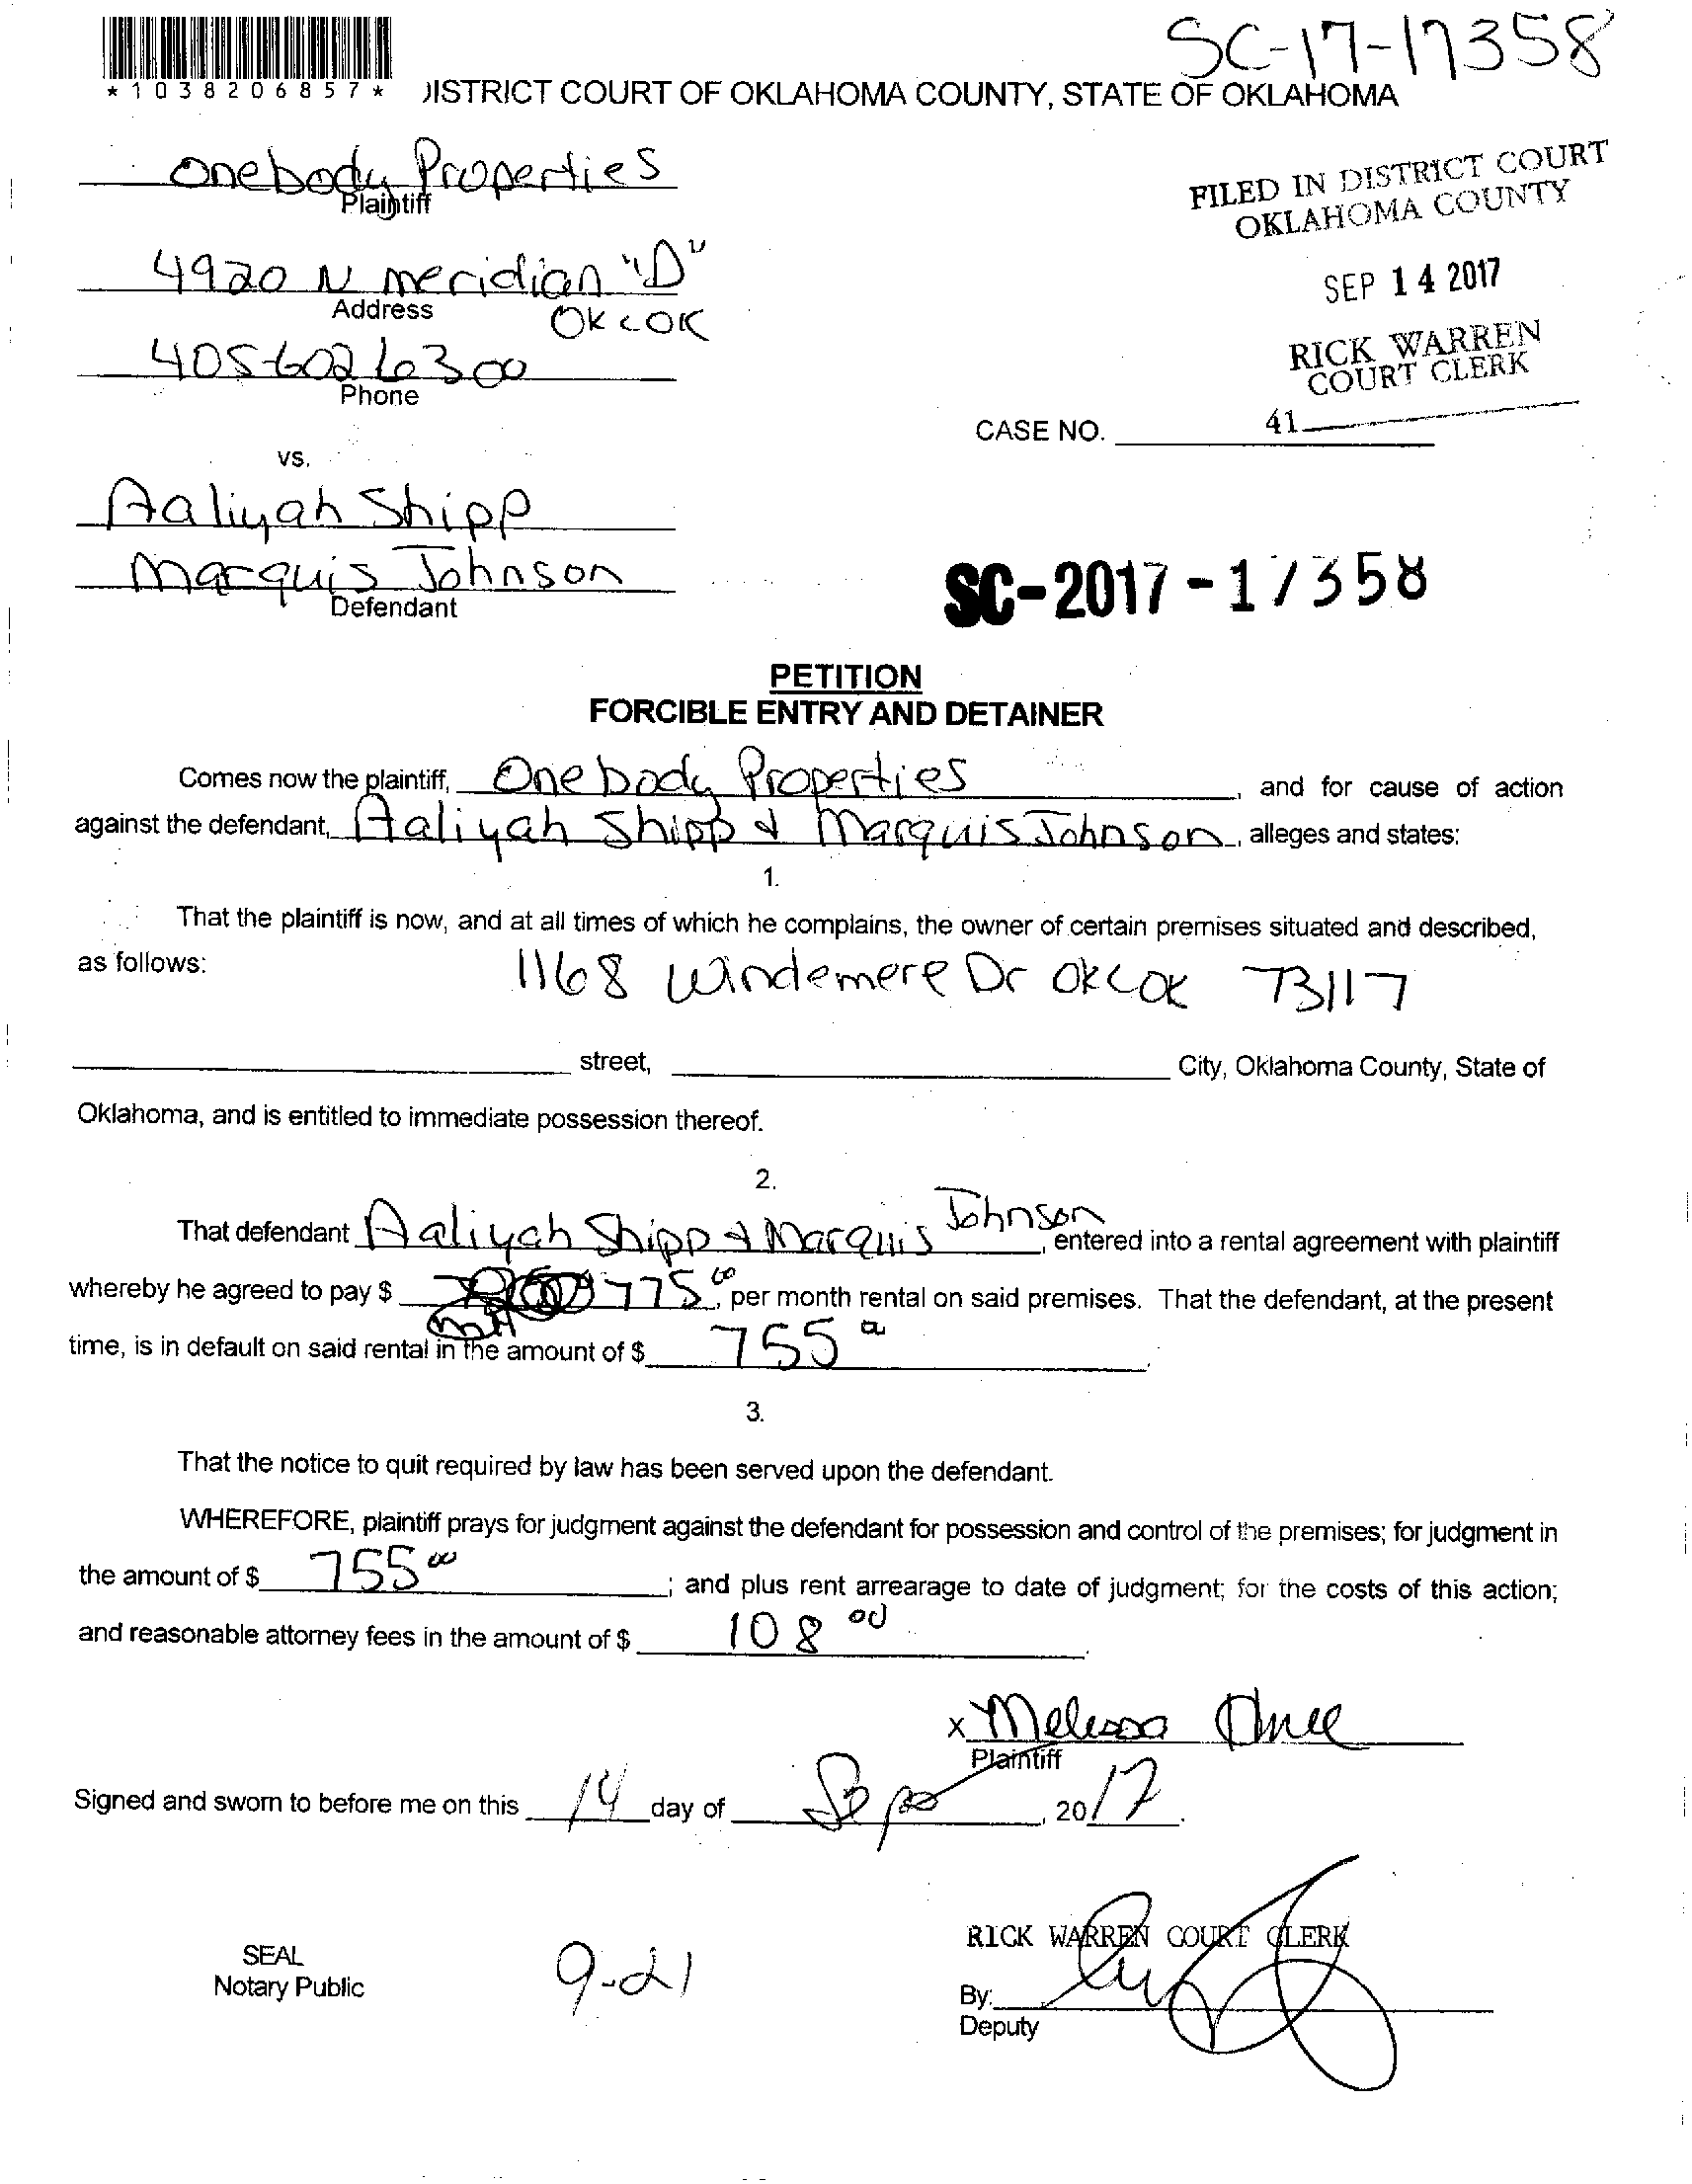 SC-17-17358
*1038206857*
DISTRICT COURT OF OKLAHOMA COUNTY, STATE OF OKLAHOMA
Onebody Properties
Plaintiff
FILED IN DISTRICT COURT
OKLAHOMA COUNTY
4920 N meridian "D"
Address
OKC OK
SEP 14 2017
405-602 6300
Phone
RICK WARREN
COURT CLERK
41
CASE NO.
vs.
Aaliyah Shipp
Marquis Johnson
Defendant
SC-2017-17358
PETITION
FORCIBLE ENTRY AND DETAINER
Comes now the plaintiff, Onebody Properties, and for cause of action
against the defendant, Aaliyah Shipp & Marquis Johnson, alleges and states:
1.
That the plaintiff is now, and at all times of which he complains, the owner of certain premises situated and described,
as follows: 1168 Windemere Dr OKC OK 73117
street, City, Oklahoma County, State of
Oklahoma, and is entitled to immediate possession thereof.
2.
That defendant Aaliyah Shipp & Marquis Johnson, entered into a rental agreement with plaintiff
whereby he agreed to pay $ 775 00, per month rental on said premises. That the defendant, at the present
time, is in default on said rental in the amount of $ 755.
3.
That the notice to quit required by law has been served upon the defendant.
WHEREFORE, plaintiff prays for judgment against the defendant for possession and control of the premises; for judgment in
the amount of $ 755 00; and plus rent arrearage to date of judgment; for the costs of this action;
and reasonable attorney fees in the amount of $ 108 00.
x Melissa
Plaintiff
Signed and sworn to before me on this 14 day of Sep, 2017.
RICK WARREN COURT CLERK
SEAL
Notary Public
9-21
By:
Deputy